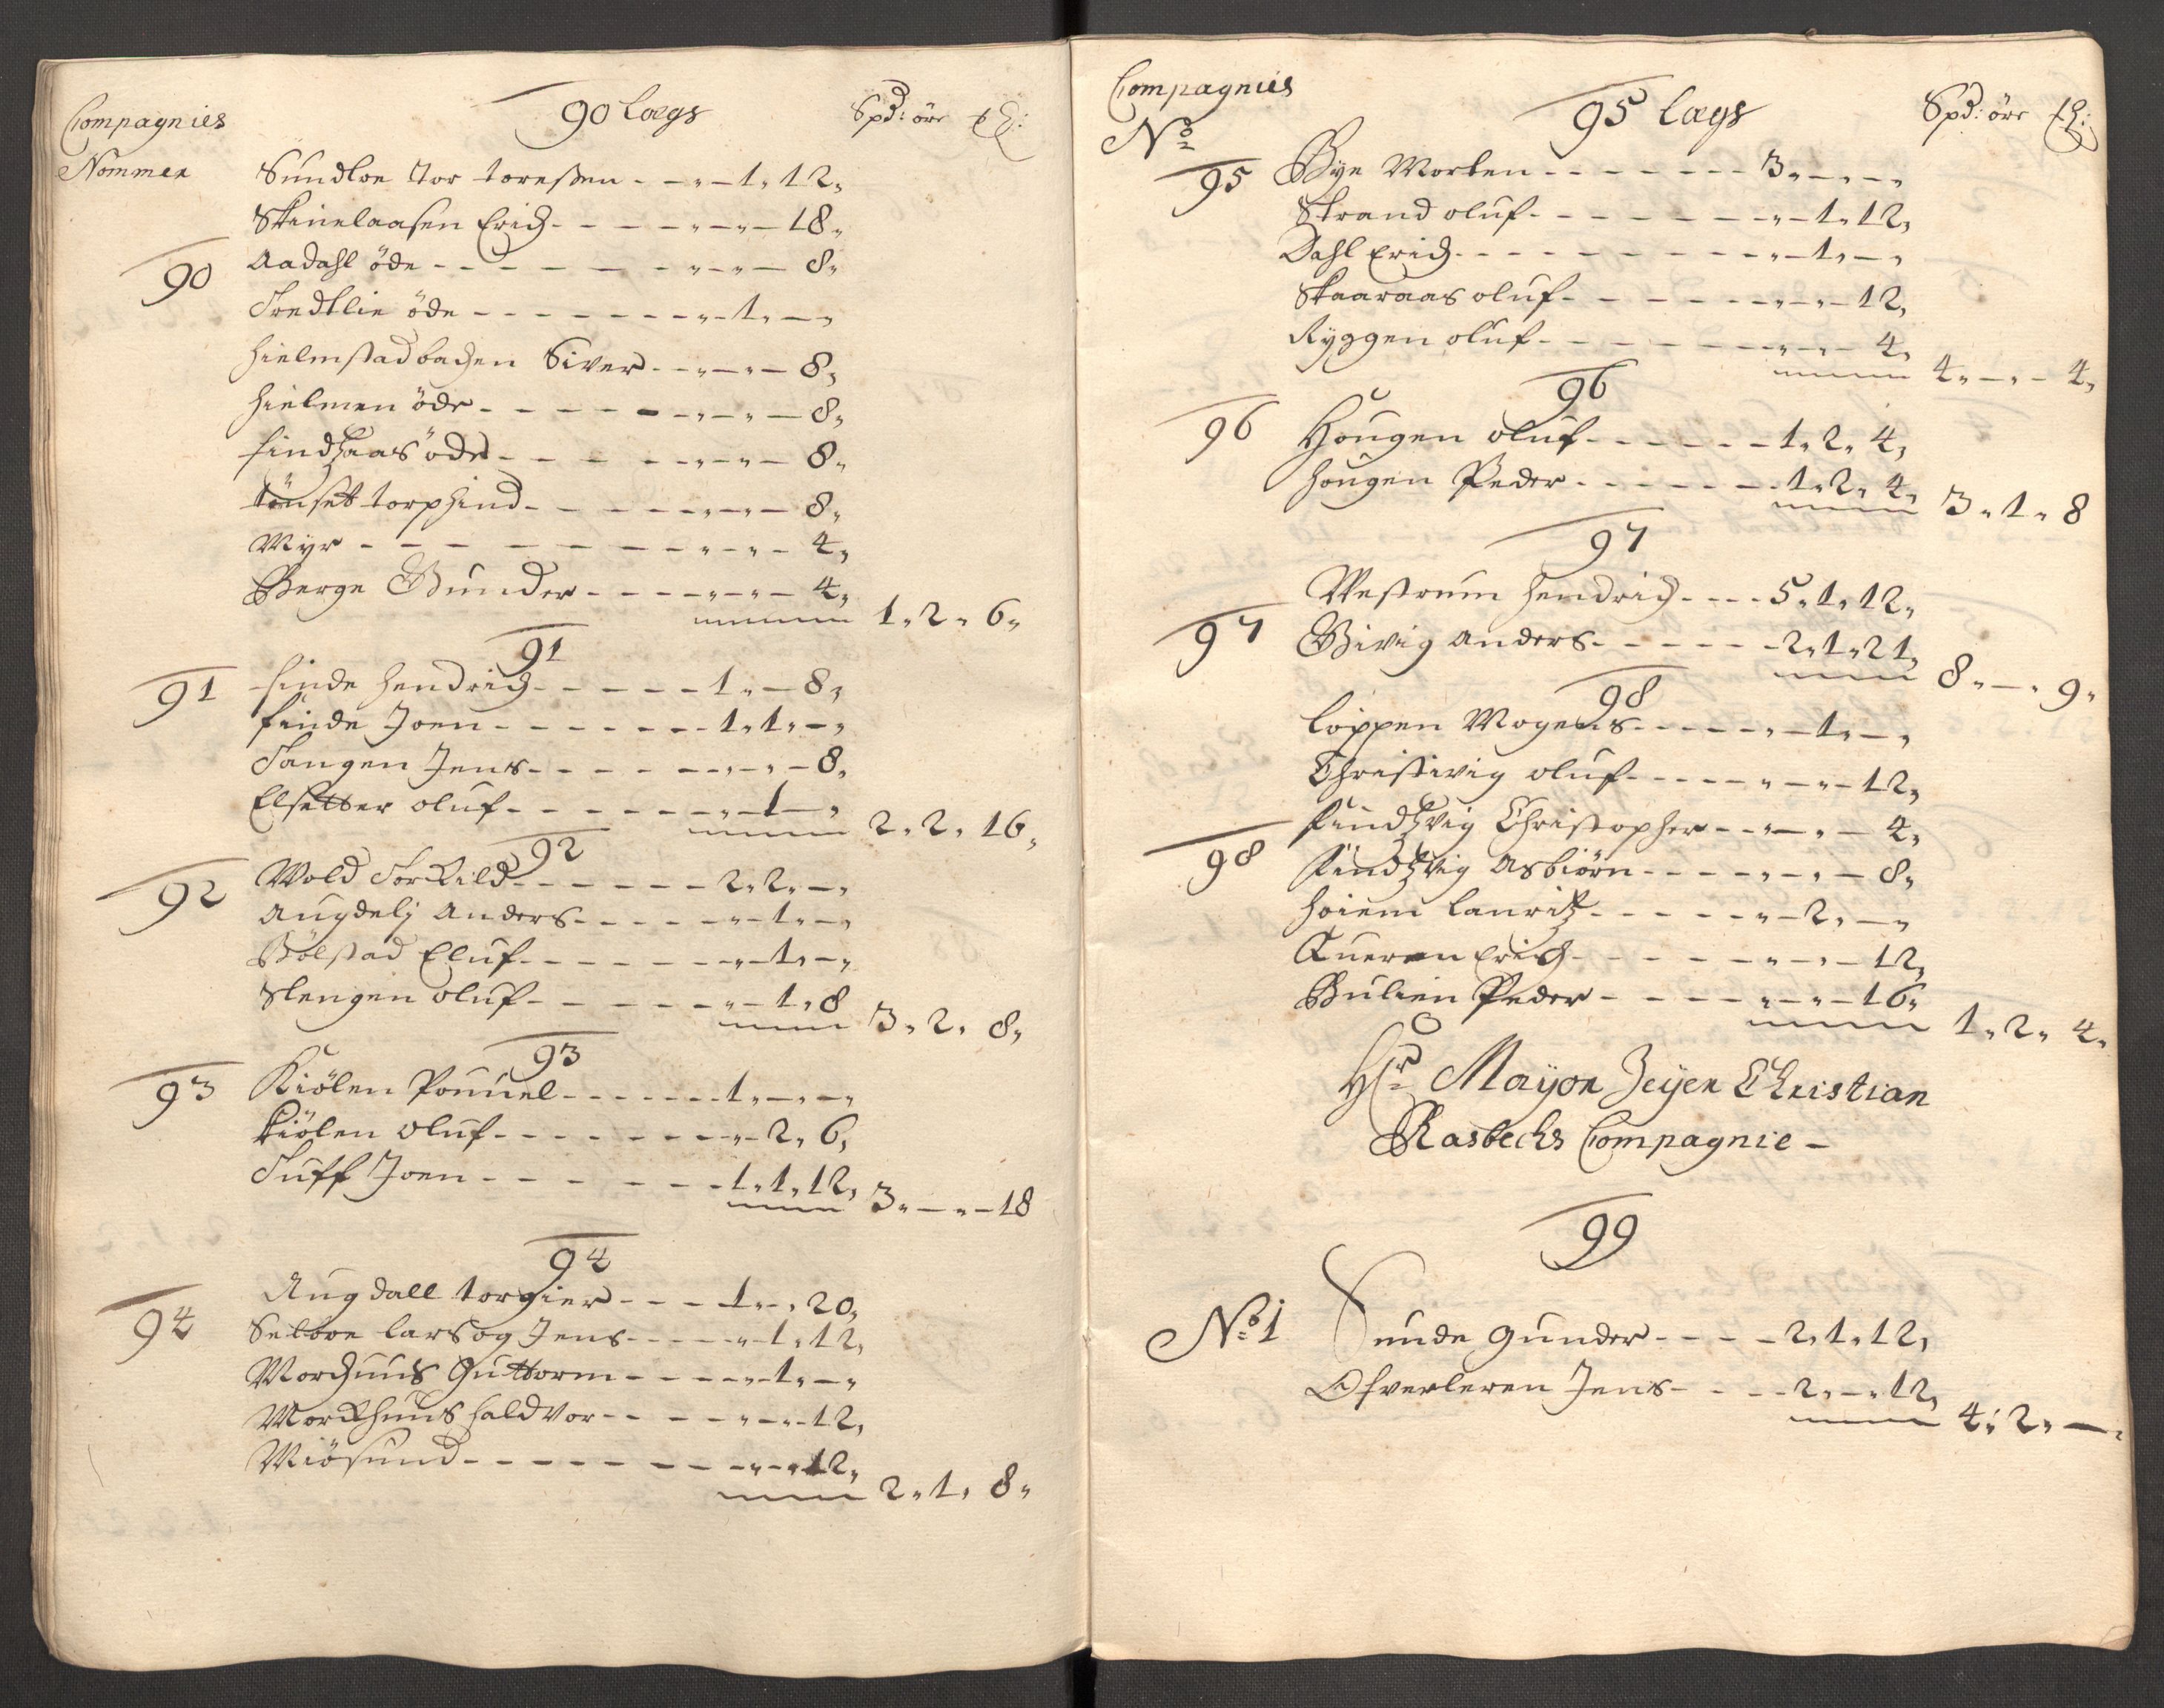 Compagnies
Nommer
90 Lægs
Spd: øre
Sundloe Tor toreßen - - „ - 1 „ 12 „
Skinelaasen Erich - - - - „ - „ - 18 „
90
Aadahl öde - - - - - - „ - „ - 8 „
öde - - - - - - - „ - 1 „ - „
hielmstadbachen Siver - - „ - „ - 8 „
hielmen öde - - - - - - „ - „ - 8 „
findhaas öde - - - - - „ - „ - 8 „
tönset torphind - - - - - „ - „ - 8 „
Myr - - - - - - - - „ - „ - 4 „
Berge Gunder - - - - „ - „ - 4 „
1 „ 2 „ 6 „
91
91
finde hendrich - - - - - 1 „ - 8 „
finde Joen - - - - - - - 1 „ 1 „ - „
Tangen Jens - - - - - - „ - „ - 8 „
Elsetter oluf - - - - - - „ - 1 - „
2 „ 2 „ 16 „
92
92
Wold Torkild - - - - - - 2 „ 2 „ - „
Augdelj Anders - - - - - „ - 1 „ - „
Bölstad Eluf - - - - - - „ - 1 „ - „
Slengen oluf - - - - - „ - 1 „ 8
3 „ 2 „ 8 „
93
93
Kiölen Pouuel - - - - - - 1 „ - „ - „
kiölen oluf - - - - - - - „ - 2 „ 6 „
Tuff Joen - - - - - - - 1 „ 1 „ 12 „
3 „ - „ - 18
94
94
Augdall torgier - - - 1 „ - „ 20 „
Selboe lars og Jens - - - - „ - 1 „ 12 „
Morchuus Guttorm - - - - „ - 1 „ - „
Morkhuus haldvor - - - - „ - „ - 12 „
Miösund - - - - - - - - „ - „ 12 „
2 „ 1 „ 8 „
Compagnies
No
95 Lægs
Spd: øre
95
Bye Morten - - - - - - - 3 „ - „ - „
Strand oluf - - - - - - - „ - 1 „ 12 „
Dahl Erich - - - - - - - - „ - 1 „ - „
Skaaraas oluf - - - - - - „ - „ - 12 „
Ryggen oluf - - - - - - „ - „ - 4 „
4 „ - „ - 4 „
96
96
Hougen oluf - - - - - - 1 „ 2 „ 4 „
hougen Peder - - - - - - 1 „ 2 „ 4 „
3 „ 1 „ 8
97
Westrum hendrich - - - 5 „ 1 „ 12 „
97
Givig Anders - - - - - - 2 „ 1 „ 21 „
8 „ - „ 9 „
98
loppen Mogens - - - - - „ - 1 „ - „
Christivig oluf - - - - - „ - „ - 12 „
findzvig Christopher - - „ - „ - 4 „
98
findzvig Asbiörn - - - - „ - „ - 8 „
hoiem lauritz - - - - - „ - 2 „ - „
Queren Erich - - - - - - „ - „ - 12 „
Bulien Peder - - - - „ - „ - 16 „
1 „ 2 „ 4 „
Hr Mayor Jeyer Christian
Rasbechs Compagnie -
99
No 1
Sunde gunder - - - - 2 „ 1 „ 12 „
Ofverleren Jens - - - - 2 „ - „ 12 „
4 „ 2 „ - „